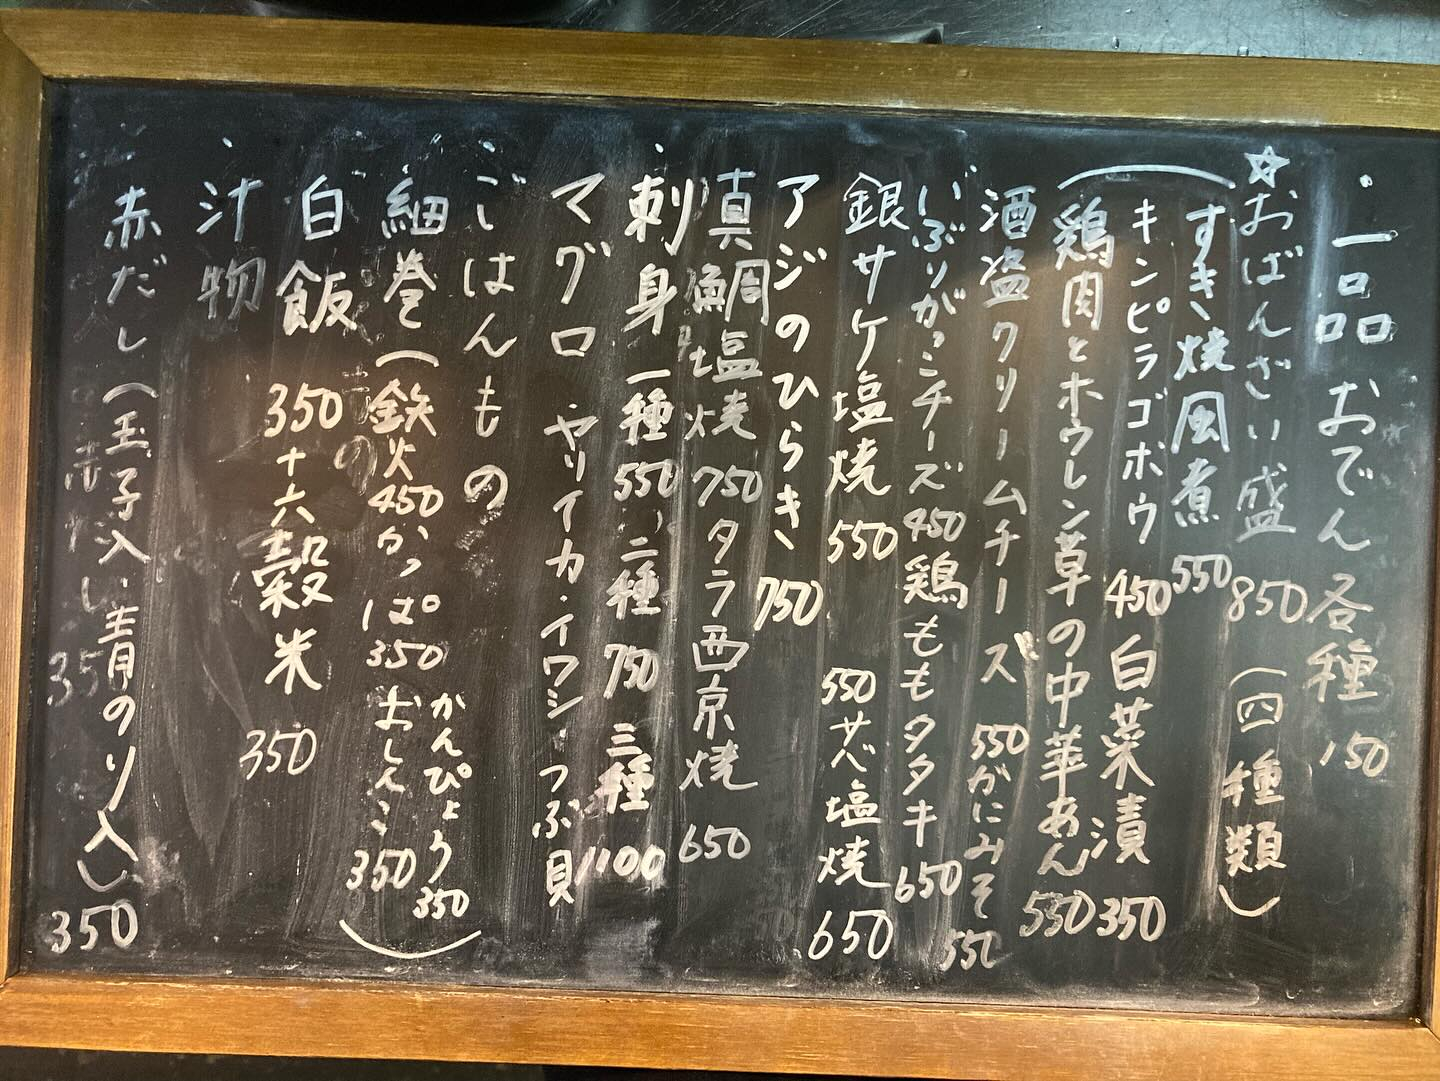 ・一品 おでん各種 150
☆おばんざい盛 850 (四種類)
(すき焼風煮 550
キンピラゴボウ 450 白菜漬 350
鶏肉とホウレン草の中華あん 550
酒盗クリームチーズ 550 がにみそ 550
いぶりがっこチーズ 450 鶏ももタタキ 650
銀サケ塩焼 550
550 サバ塩焼 650
アジのひらき 750
真鯛塩焼 750 タラ西京焼 650
・刺身 一種 550、二種 750 三種 1100
マグロ・ヤリイカ・イワシ つぶ貝
・ごはんもの
細巻(鉄火 450 かっぱ 350 おしんこ 350
かんぴょう 350)
白飯 350 十六穀米 350
・汁物
赤だし(玉子入)・青のり入) 350